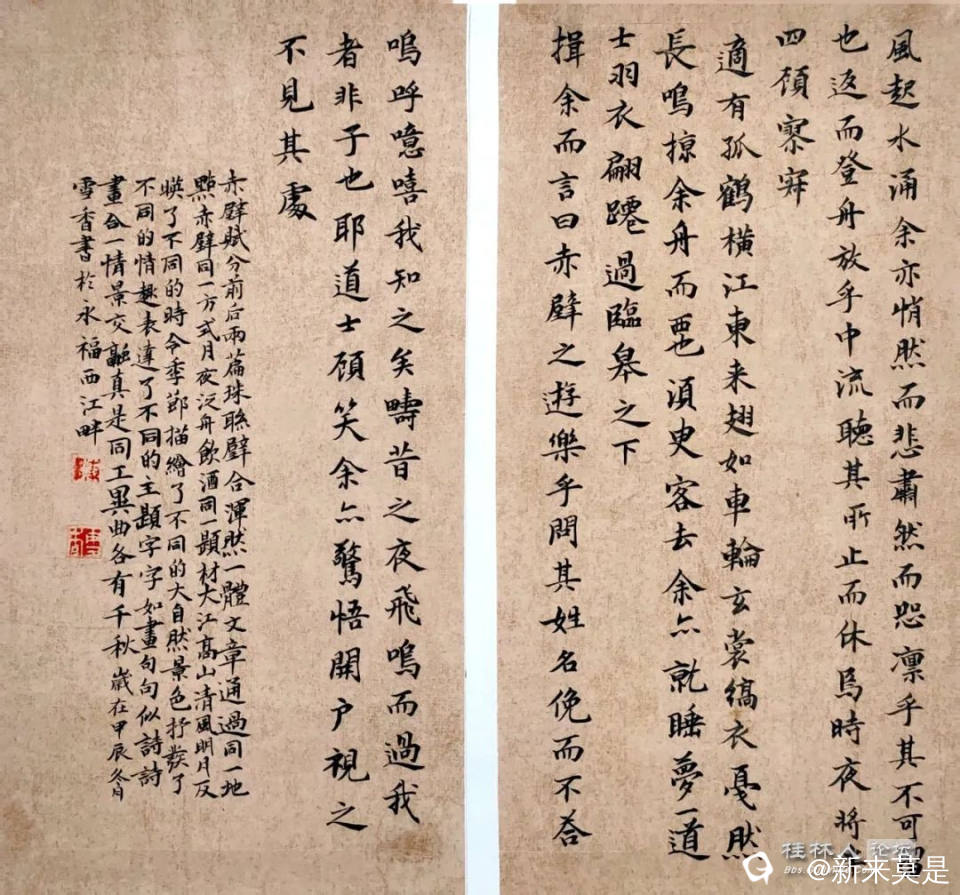 風起水涌余亦悄然而悲肅然而恐凛乎其不可留
也返而登舟放乎中流聽其所止而休焉時夜將半
四顧寥寂
適有孤鶴橫江東来翅如車輪玄裳縞衣戛然
長鳴掠余舟而西也須臾客去余亦就睡夢一道
士羽衣翩躚過臨皋之下
揖余而言曰赤壁之遊樂乎問其姓名俛而不答
嗚呼噫嘻我知之矣疇昔之夜飛鳴而過我
者非子也耶道士顧笑余亦驚悟開户視之
不見其處
赤壁賦分前后兩篇珠聯璧合渾然一體文章通過同一地
點赤壁同一方式月夜泛舟飲酒同一題材大江髙山清風明月反
映了不同的時令季節描繪了不同的大自然景色抒發了
不同的情趣表達了不同的主題字字如畫句句似詩詩
畫合一情景交融真是同工異曲各有千秋歲在甲辰冬月
雪香書於永福西江畔
桂林人论坛
@新来莫是